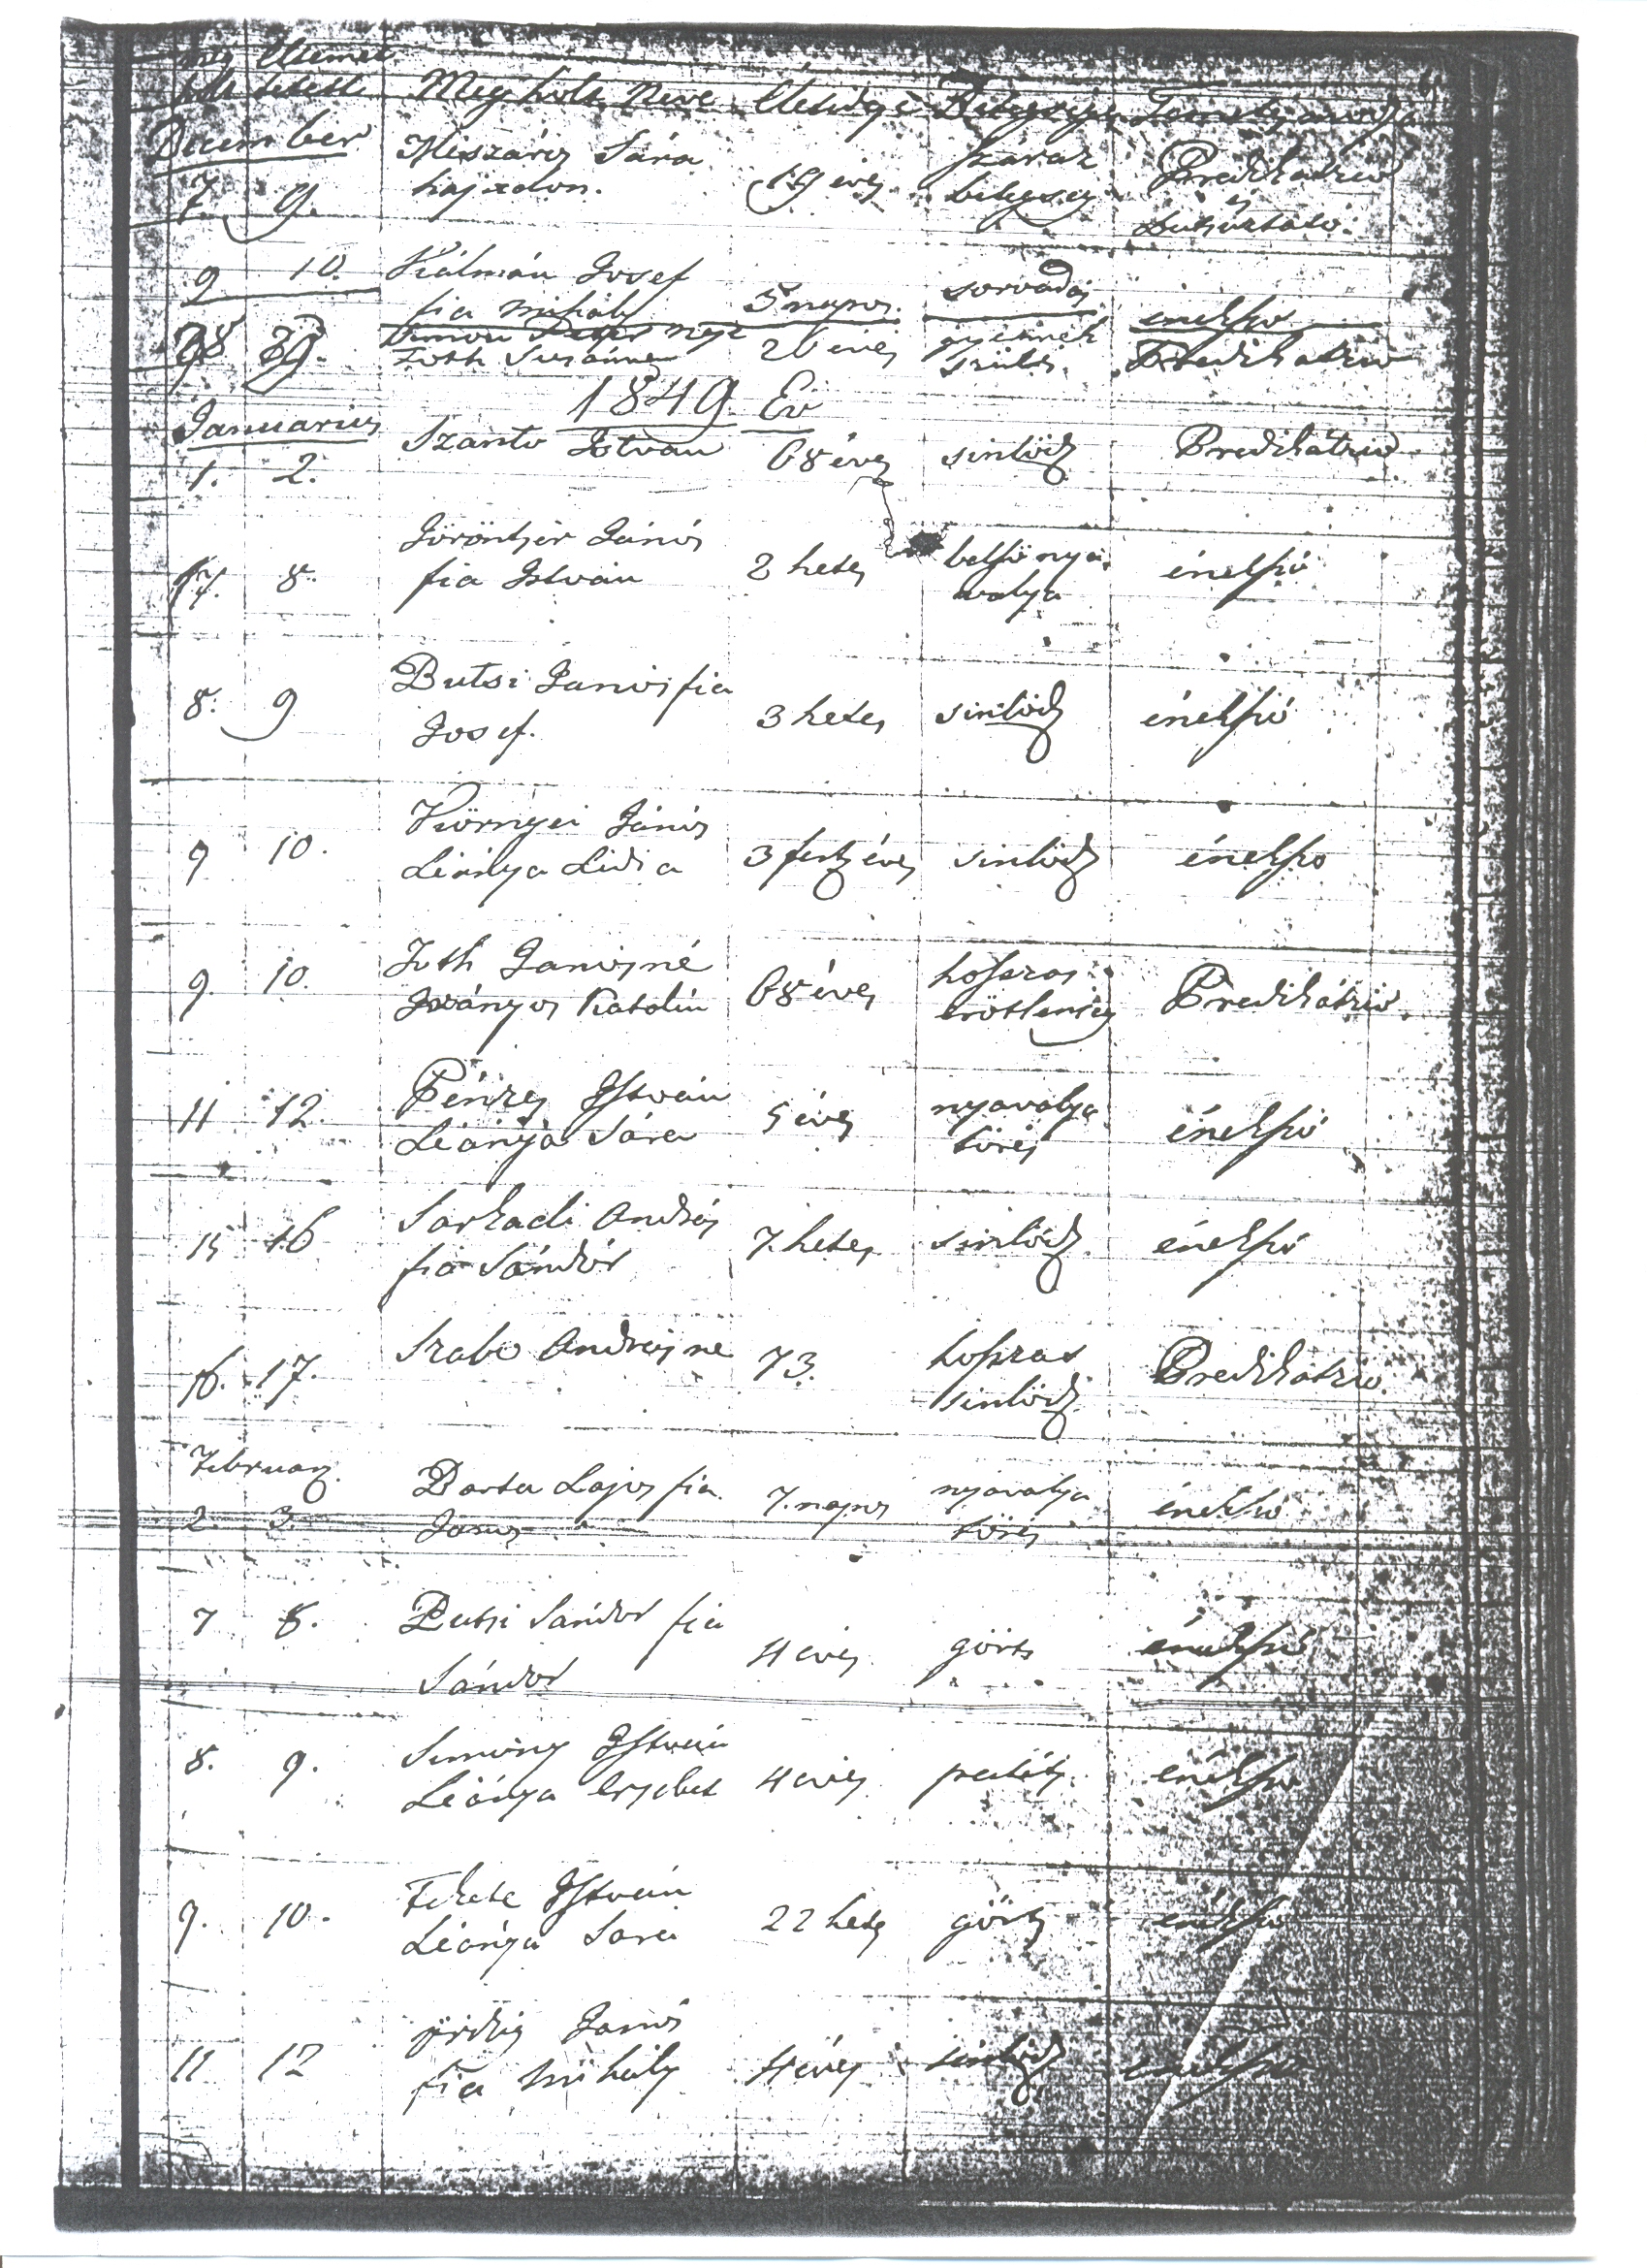 Meg Eltemet
holt tetett Megholt Neve Életideje Betegsége
December
7. 9. Mészáros Sára hajadon. 19 éves száraz betegség Predikátzió és butsuztató.
9 10. Kálmán Josef fia Mihály 5 napos. sorvadás éneklszó
28 29. Simon Péter neje Toth Susánna 26 éves gyermek szülés. Predikátzió
1849. Év
Januarius
1. 2. Szanto Istvan 68 éves sinlődz Predikátzió
7. 8. Jánós fia István 2 hetes belső nyavalya énekszó
8. 9 Butsi Janos fia Josef. 3 hetes sinlődz énekszó
9 10. Környei Jánós Leánya Lidia 3 fertj éves sinlődz énekszo
9. 10. Toth Janosné Katalin 68 éves hoszas erőtlenség Predikátzió.
11 12. Pénzes István Leánya Sára 5 éves nyavalya törés énekszó
15 16 Sarkadi Andrós fia Sándór 7. hetes sinlődz. énekszó
16. 17. Szabo Andrásne 73. hoszas sinlődz Predikátzio.
Februar.
2. 3. Barta Lajos fia Janos 7. napos nyavalya törés énekszó
7 8. Butsi Sándor fia Sándor 4 éves görts énekszó
8. 9. István Leánya Ersebet 4 éves énekszo
9. 10. Fekete István Leánya Sara 22 hetes görts énekszo
11 12 Janós fia Mihály 4 éves sinlődz énekszo